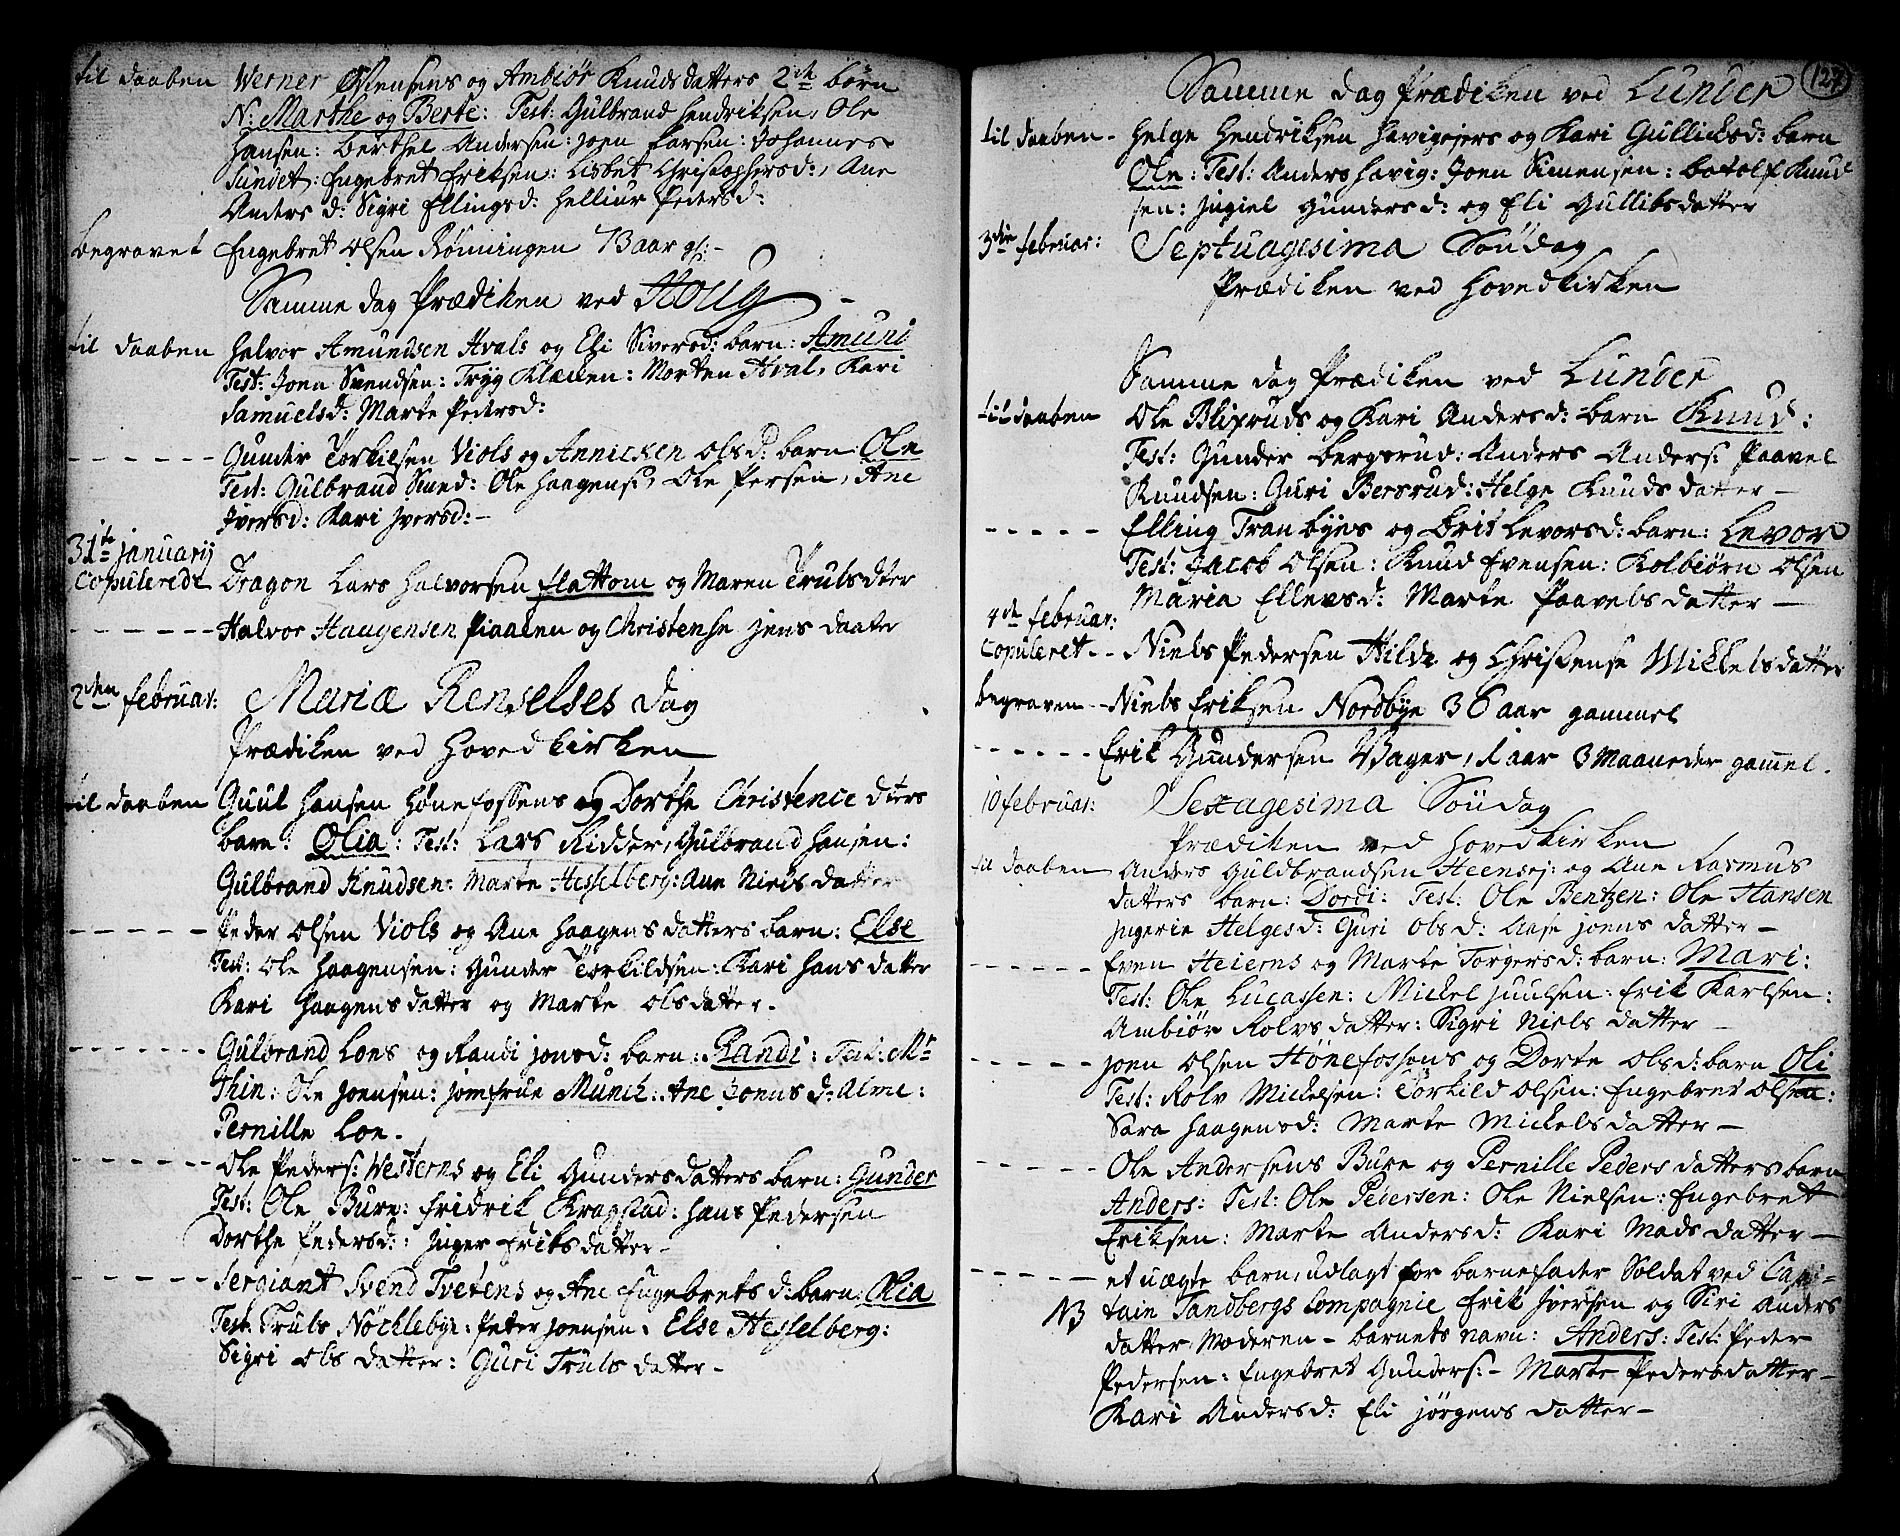 til daaben Werner Steensens og Ambiör Knuds datters 2de börn
N: Marthe og Berte: Test: Gulbrand Hendriksen, Ole
Hansen: Berthel Andersen: Joen Larsen: Johannes
Sundet: Engebret Eriksen: Lisbet Christophersd:, Ane
Anders d: Sigri Ellingsd: Helliur Peders d:
begravet Engebret Olsen Rönningen 73 aar gl: -
Samme dag Prædiken ved Houg -
til daaben Halvor Amundsen Hvals og Eli Siversd: barn: Amund
Test: Joen Svendsen: Tryg Klækken: Morten Hval, Kari
Samuelsd: Marte Pedersd:
- - - - - - Gunder Torkilsen Viols og Annicken Olsd: barn Ole
Test: Gulbrand Smed: Ole Haagens:, Ole Persen, Ane
Iversd: Kari Iversd: -
31te Januarij
Copulerede Dragon Lars Halvorsen Flattom og Maren Truls dter
- - - - - - Halvor Haagensen Piaaken og Christense Jens daater
2den Februar: Mariæ Renselses Dag
Prædiken ved Hovedkirken
til daaben Guul Hansen Hönefossens og Dorthe Christence dters
barn: Olia: Test: Lars Ridder, Gulbrand Hansen:
Gulbrand Knudsen: Marte Hesselberg: Ane Niels datter
- - - - - - Peder Olsen Viols og Ane Haagens datters barn: Else
Test: Ole Haagensen: Gunder Torkildsen: Kari Hans datter
Kari Haagens datter og Marte Ols datter.
- - - - - - Gulbrand Loes og Randi Jonsd: barn: Randi: Test: Mr
Thin: Ole Joensen: Jomfrue Munch: Ane Joens d: Alme:
Pernille Loe.
- - - - - - Ole Peders: Westerns og Eli Gunders datters barn: Gunder
Test: Ole Bure: Fridrik Kragstad: Hans Pedersen
Dorthe Pedersd: Inger Eriks datter -
- - - - - - Sergiant Svend Tvetens og Ane Engebrets d: barn: Olia
Test: Truls Nöcklebye: Peter Joensen: Else Hesselberg:
Sigri Ols datter: Guri Truls datter -
127
Samme dag Prædiken ved Lunder
til daaben - Helge Hendriksen Havigejers og Kari Gullichsd: barn
Ole: Test: Anders Havig: Joen Simensen: Botolf Knud
sen: Ingiel Gundersd: og Eli Gulliks datter
3die Februar: Septuagesima Söndag
Prædiken ved Hovedkirken
Samme dag Prædiken ved Lunder
til daaben Ole Blixruds og Kari Andersd: barn Knud:
Test: Gunder Bergsrud: Anders Anders: Paavel
Knudsen: Guri Bersrud: Helge Knuds datter -
- - - - - Elling Tranbyes og Brit Levorsd: barn: Levor
Test: Jacob Olsen: Knud Evensen: Kolbiörn Olsen
Maria Ellevsd: Marte Paavels datter -
4de Februar:
Copuleret - - Niels Pedersen Hilde og Christense Mickelsdatter
begraven - - Niels Eriksen Nordbye 36 aar gammel
- - - - - - Erik Gundersen Vager, 1 aar 3 Maaneder gammel.
10 Februar: Sexagesima Söndag
Prædiken ved Hovedkirken
til daaben Anders Guldbrandsen Heensej: og Ane Rasmus
datters barn: Dordi: Test: Ole Bentzen: Ole Hansen
Ingerie Helgesd: Guri Olsd: Aase Joens datter -
- - - - - - Even Heierns og Marte Torgersd: barn: Mari:
Test: Ole Lucassen: Mickel Juulsen: Erik Karlsen:
Ambiör Rolvs datter: Sigri Niels datter -
- - - - - - Joen Olsen Hönefossens og Dorte Olsd: barn Oli
Test: Rolv Mickelsen: Torkild Olsen: Engebret Olsen:
Sara Haagensd: Marte Mickels datter -
- - - - - - Ole Andersens Bure og Pernille Peders datters barn
Anders: Test: Ole Pedersen: Ole Nielsen: Engebret
Eriksen: Marte Andersd: Kari Mads datter -
- - - - - - et uægte barn, udlagt for barnefader Soldat ved Capi-
NB tain Tandbergs Compagnie Erik Iversen og Siri Anders
datter Moderen - barnets navn: Anders: Test: Peder
Pedersen: Engebret Gunders: - Marte Pedersdatter -
Kari Andersd: Eli Jörgens datter -